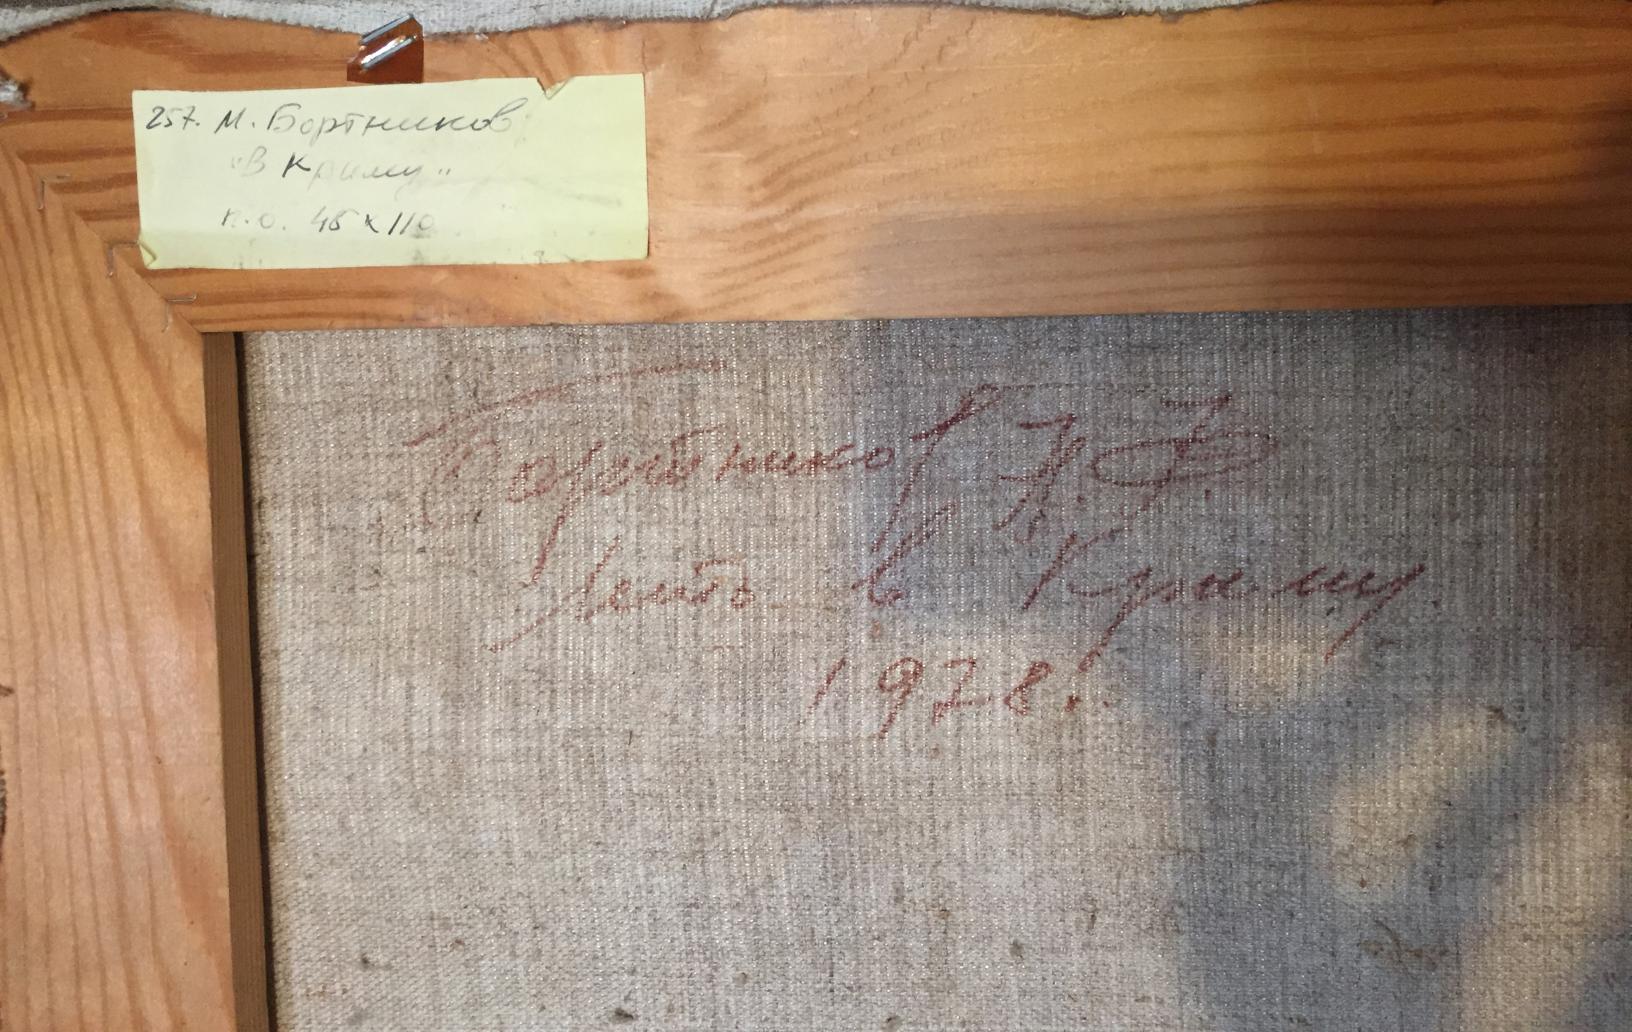 257. М. Бортников
"В Криму"
п.о. 45 х 110
Бортников М. Ф.
Літо в Криму
1978г.